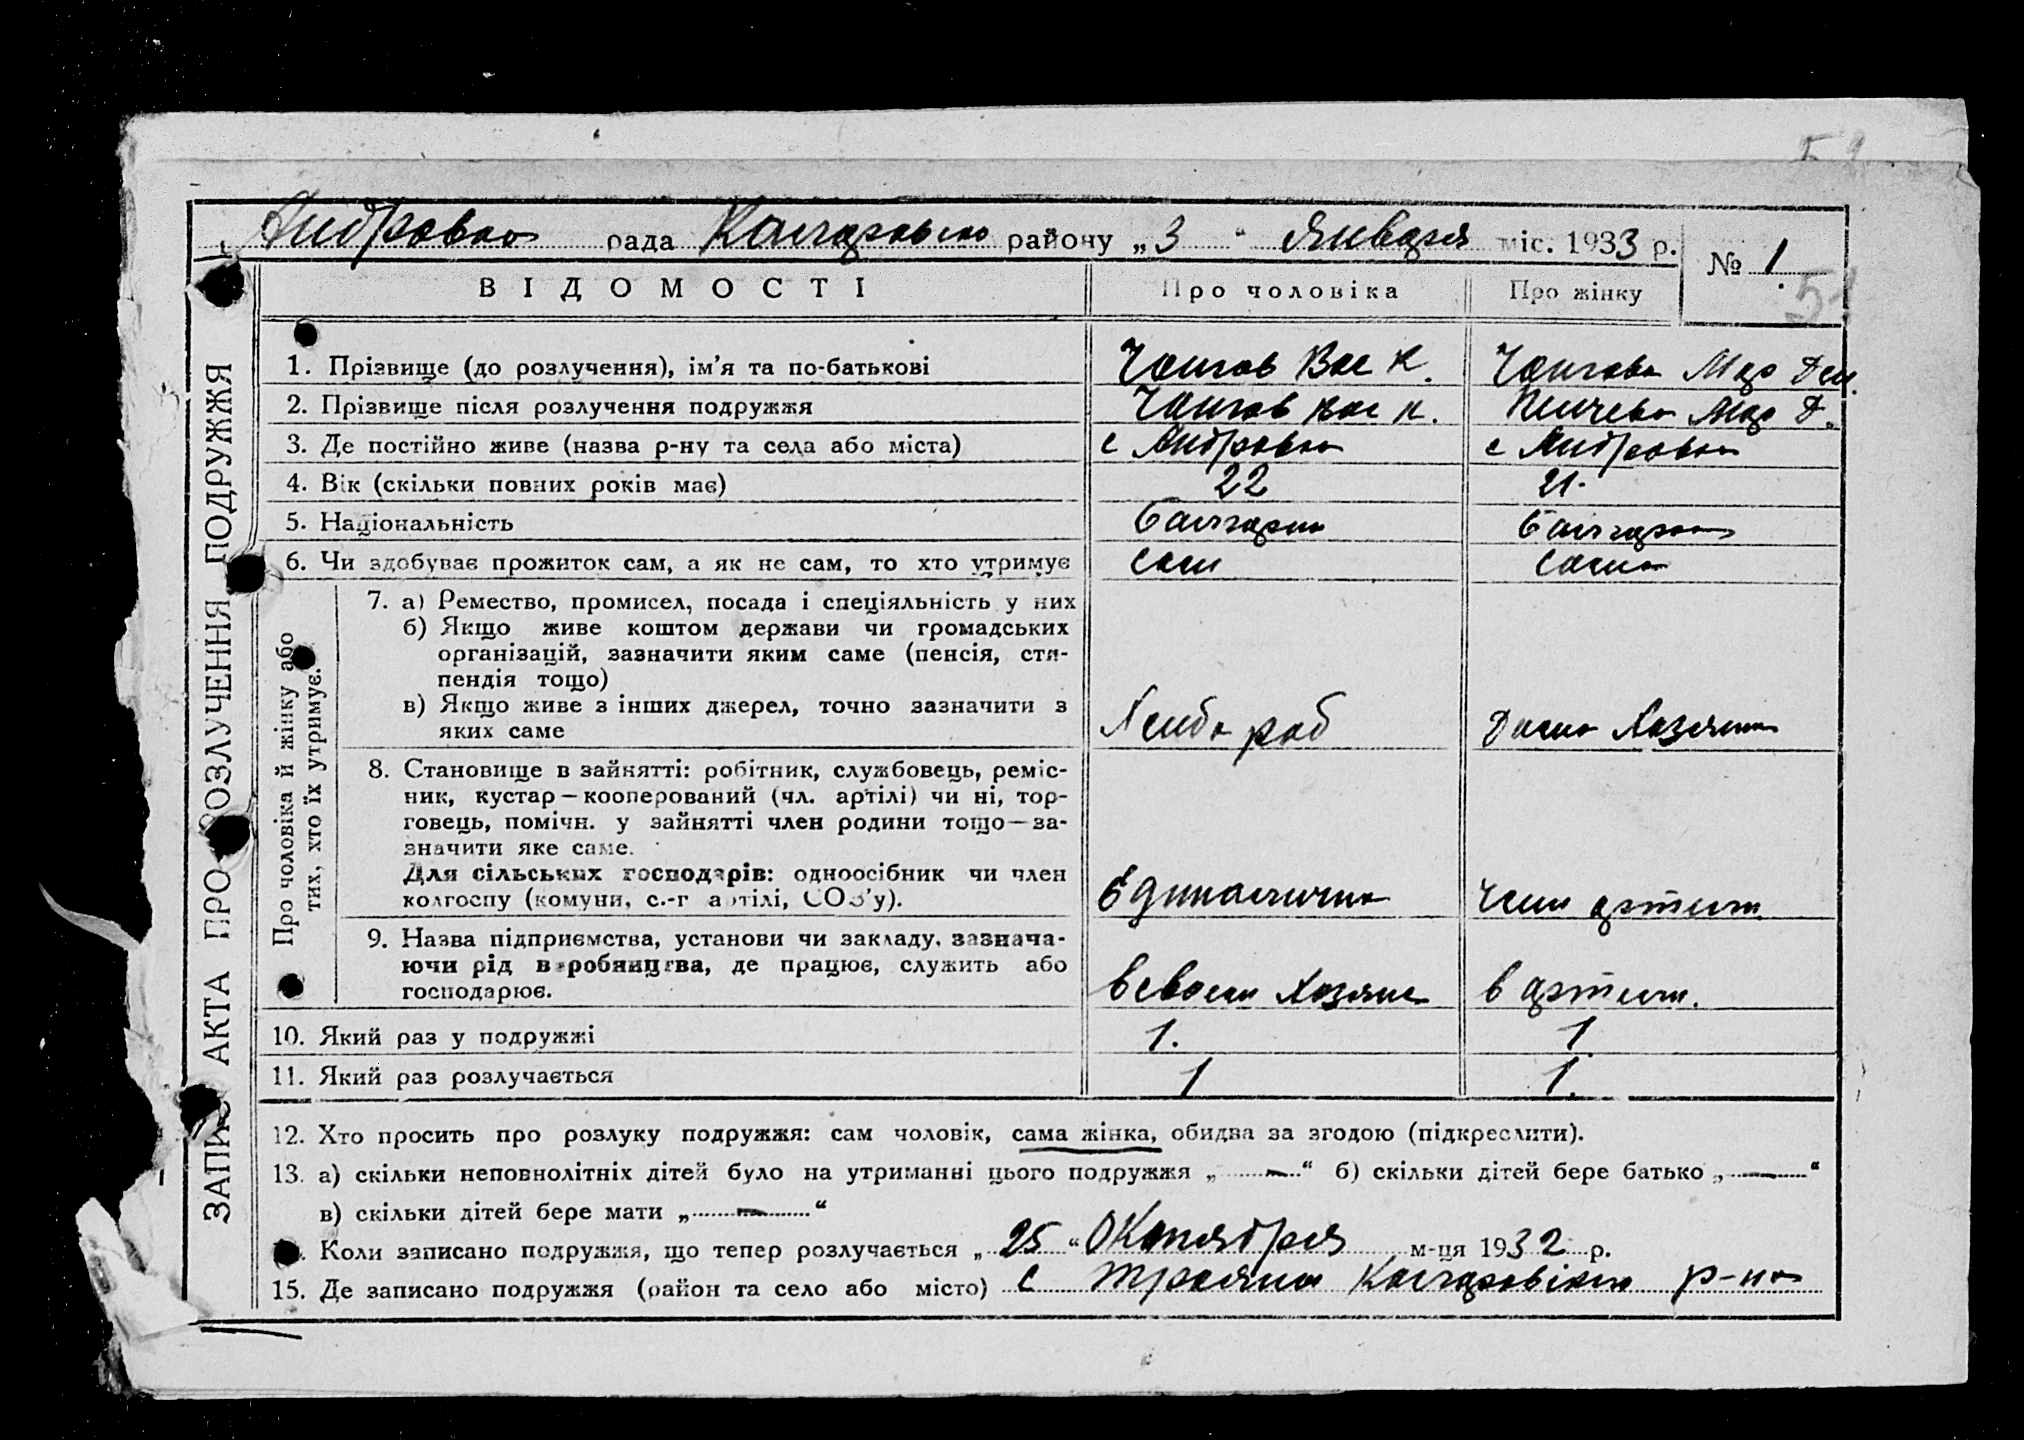 Андровка рада Колларовско району „3“ Января міс. 1933 р. № 1
51
ВІДОМОСТІ Про чоловіка Про жінку
ЗАПИС АКТА ПРО РОЗЛУЧЕННЯ ПОДРУЖЖЯ
1. Прізвище (до розлучення), ім'я та по-батькові Вас К. Мар Дем.
2. Прізвище після розлучення подружжя Вас К. Мар Д.
3. Де постійно живе (назва р-ну та села або міста) с Андровка с Андровка
4. Вік (скільки повних років має) 22 21.
5. Національність болгарин болгарка
6. Чи здобуває прожиток сам, а як не сам, то хто утримує сам сама
Про чоловіка й жінку або тих, хто їх утримує.
7. а) Ремество, промисел, посада і спеціяльність у них
б) Якщо живе коштом держави чи громадських
організацій, зазначити яким саме (пенсія, сти-
пендія тощо)
в) Якщо живе з інших джерел, точно зазначити з
яких саме Хлебороб Домо Хозяйка
8. Становище в зайнятті: робітник, службовець, реміс-
ник, кустар—кооперований (чл. артілі) чи ні, тор-
говець, помічн. у зайнятті член родини тощо—за-
значити яке саме.
Для сільських господарів: одноосібник чи член
колгоспу (комуни, с.-г артілі, СОЗ'у). Единоличник член артели
9. Назва підприємства, установи чи закладу, зазнача-
ючи рід виробництва, де працює, служить або
господарює. в своем хозяйстве в артели.
10. Який раз у подружжі 1. 1
11. Який раз розлучається 1 1.
12. Хто просить про розлуку подружжя: сам чоловік, сама жінка, обидва за згодою (підкреслити).
13. а) скільки неповнолітніх дітей було на утриманні цього подружжя „—“ б) скільки дітей бере батько „—“
в) скільки дітей бере мати „—“
Коли записано подружжя, що тепер розлучається „25“ Октября м-ця 1932 р.
15. Де записано подружжя (район та село або місто) с Трояны р-на